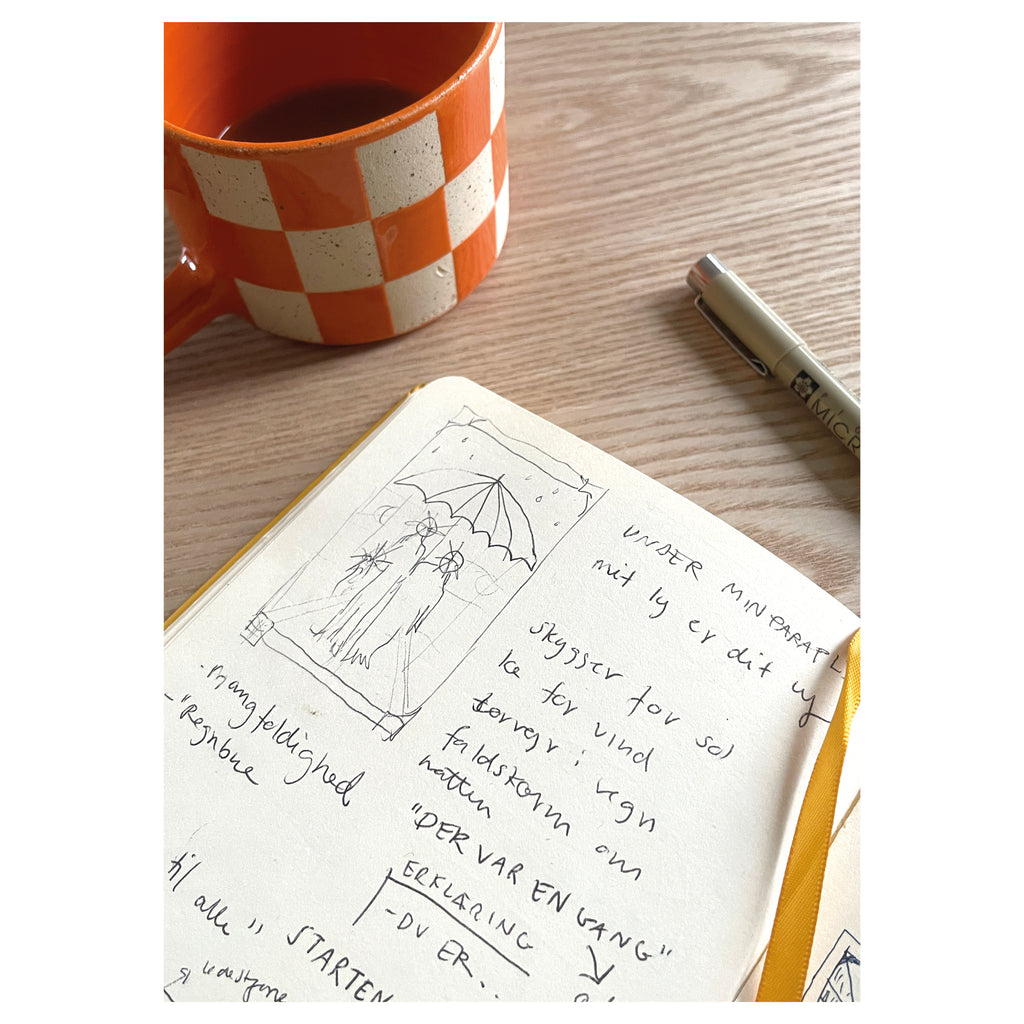 UNDER MIN PARAPL
mit ly er dit ly
skygger for sol
læ for vind
tørvejr i regn
faldskærm om
natten
"DER VAR EN GANG"
ERKLÆRING
-DU ER...
· mangfoldighed
- "Regnbue
til alle" STARTEN
MICR